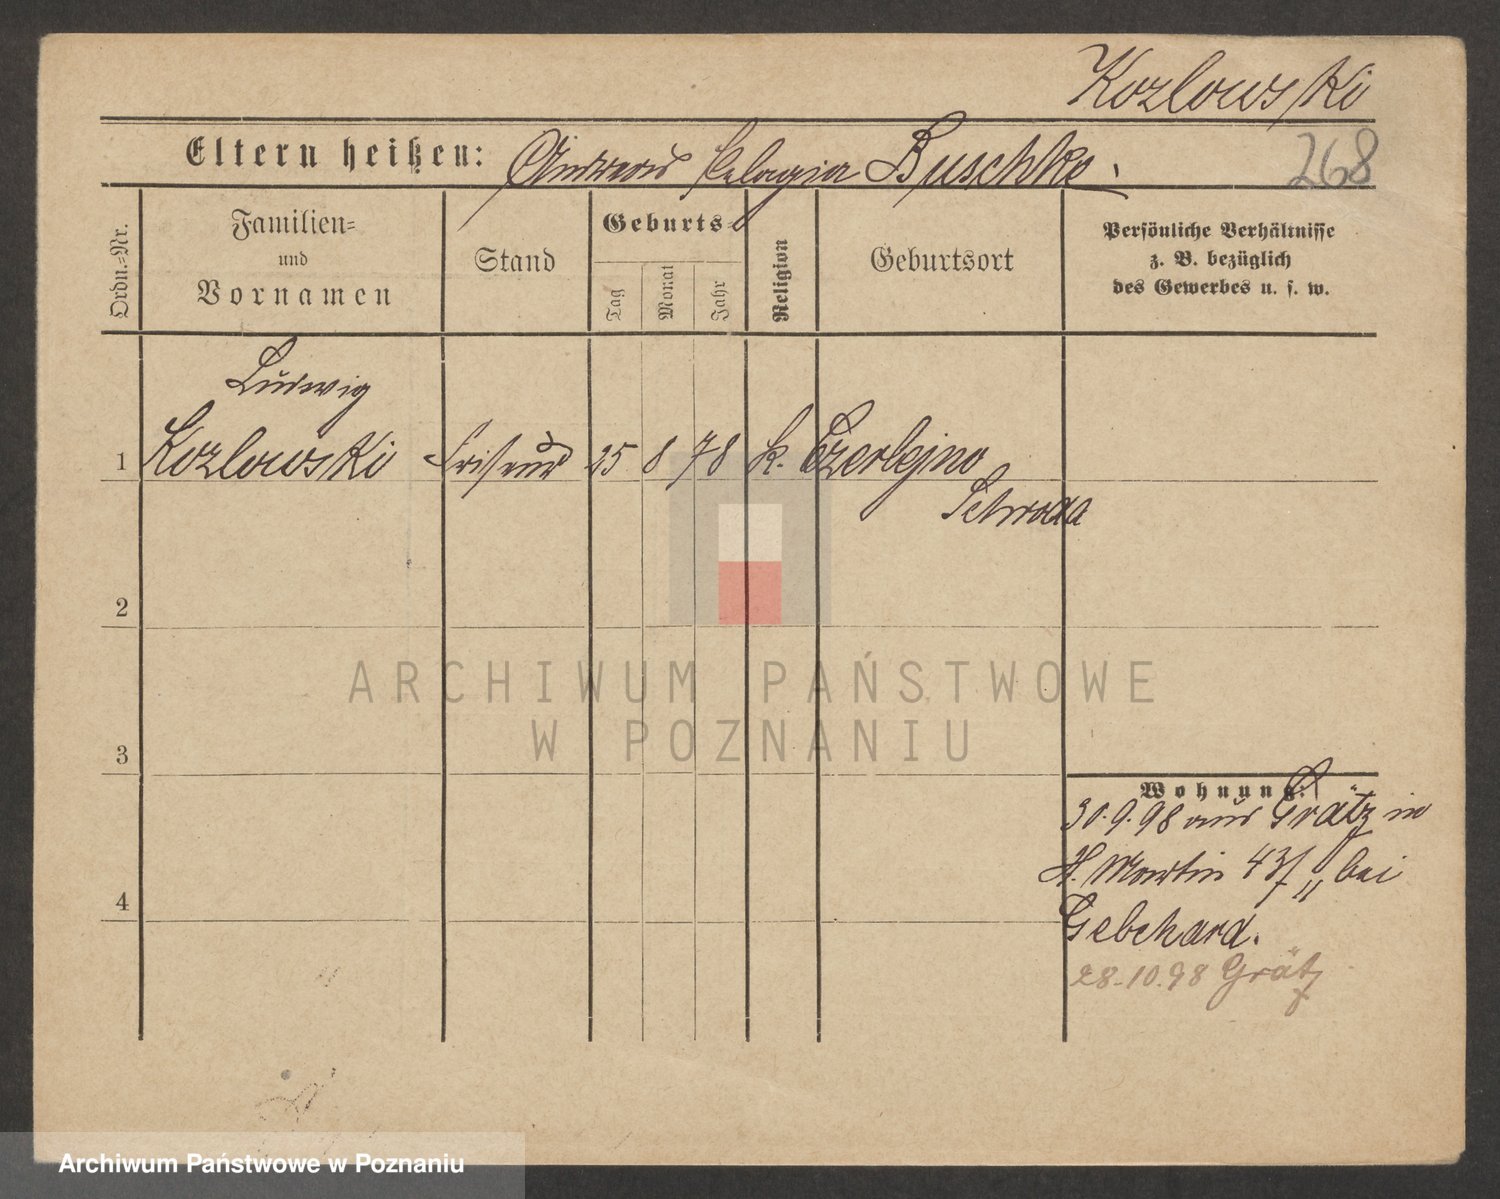 Kozlowski
Eltern heißen: Andreas Pelagia Buschke.
268
Ordn.=Nr.
Familien=
und
Vornamen
Stand
Geburts=
Tag
Monat
Jahr
Religion
Geburtsort
Persönliche Verhältnisse
z. B. bezüglich
des Gewerbes u. s. w.
Ludwig
1 Kozlowski Friseur 25 8 78 k. Czerlejno
Schroda
2
ARCHIWUM PAŃSTWOWE
W POZNANIU
3
Wohnung:
30.9.98 aus Grätz in
St. Martin 43/II bei
4
Gebehard.
28.10.98 Grätz
Archiwum Państwowe w Poznaniu